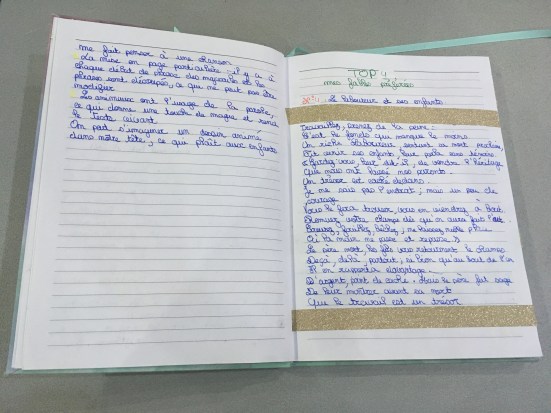 me fait penser à une chanson
La mise en page particulière : il y a à
chaque début de phrase des majuscules et les
phrases sont découpées, ce qui ne peut pas être
modifier
Les animaux ont l'usage de la parole,
ce qui donne une touche de magie et rend
le texte vivant.
On peut s'imaginer un dessin animé
dans notre tête, ce qui plaît aux enfants
TOP 4
mes fables préférées
n°4 Le laboureur et ses enfants
Travaillez, prenez de la peine :
C'est le fonds qui manque le moins.
Un riche laboureur, sentant sa mort prochaine,
Fit venir ses enfants, leur parla sans témoins
« Gardez-vous, leur dit-il, de vendre l'héritage
Que nous ont laissé nos parents.
Un trésor est caché dedans.
Je ne sais pas l'endroit ; mais un peu de
courage
Vous le fera trouver, vous en viendrez à bout.
Remuez votre champ dès qu'on aura fait l'Oût.
Creusez, fouillez, bêchez ; ne laissez nulle place
Où la main ne passe et repasse. »
Le père mort, les fils vous retournent le champ
Deçà, delà, partout ; si bien qu'au bout de l'an
Il en rapporta davantage.
D'argent, point de caché. Mais le père fut sage
De leur montrer avant sa mort
Que le travail est un trésor